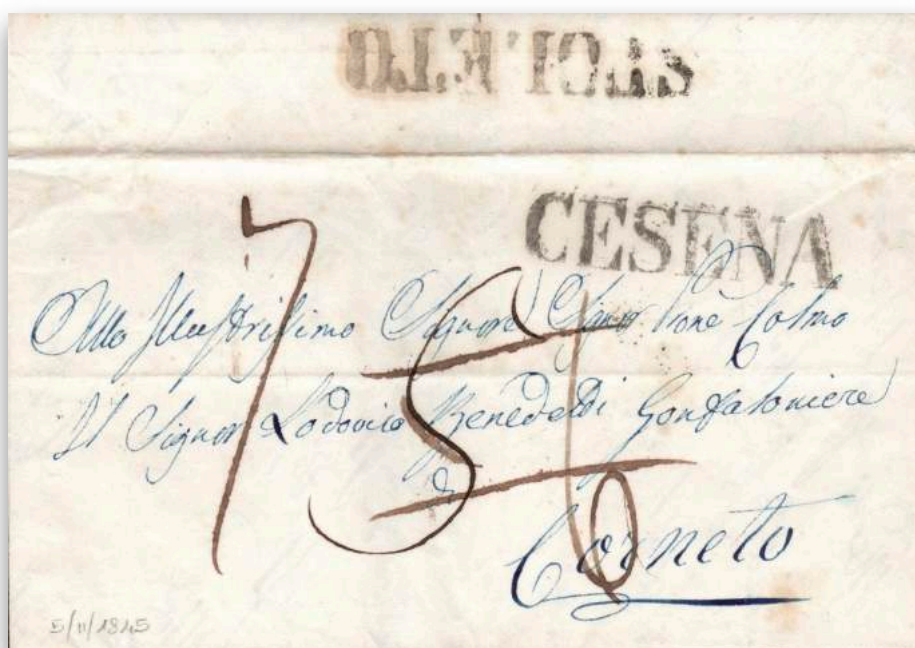 CESENA
Allo Illustrissimo Signore Signor Prone Colmo
Il Signor Lodovico Benedetti Gonfaloniere
di
Corneto
7 5
5/11/1845